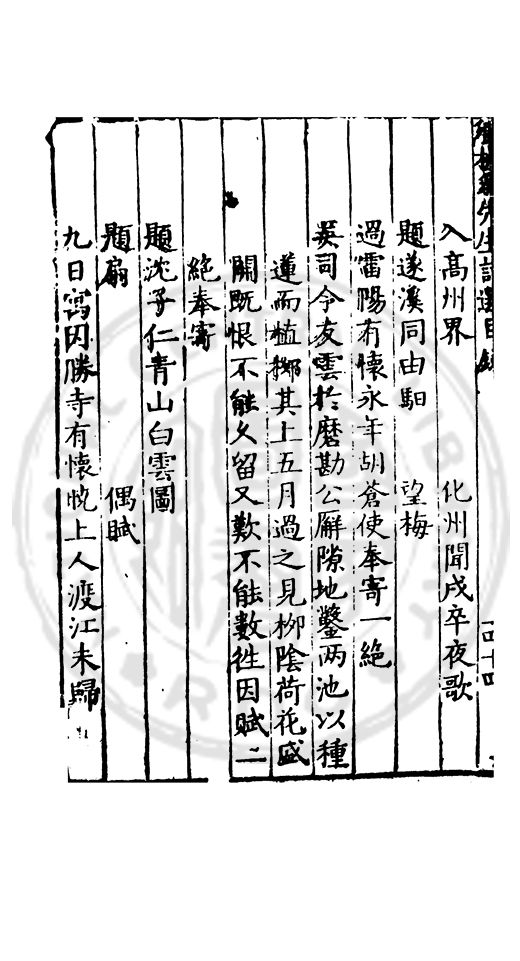 先生詩選目錄
四十四
入高州界 化州聞戍卒夜歌
題遂溪同由馹 望梅
過雷陽有懷永年胡蒼使奉寄一絶
英司令友雲於磨勘公廨隙地鑿两池以種
蓮而植栁其上五月過之見栁陰荷花盛
開既恨不能久留又歎不能數徃因賦二
絶奉寄
題沈子仁青山白雲圖
題扇 偶賦
九日寓因勝寺有懷恱上人渡江未歸